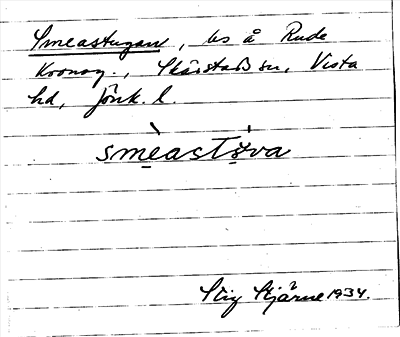 Smeastugan, bs å Rude
Kronog., Skärstads sn, Vista
hd, Jönk. l.
smèastúva
Stig Stjärne 1934.